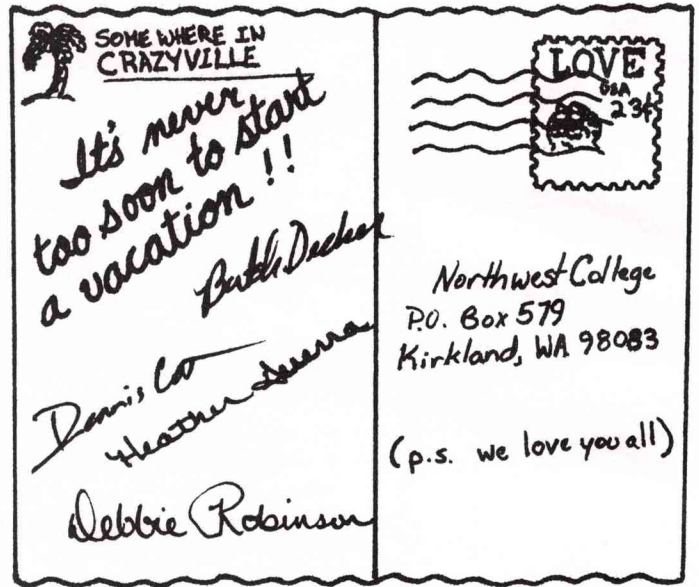 SOMEWHERE IN
CRAZYVILLE
It's never
too soon to start
a vacation!!
Dennis
Heather
Debbie Robinson
LOVE
USA
23¢
Northwest College
P.O. Box 579
Kirkland, WA 98083
(p.s. we love you all)